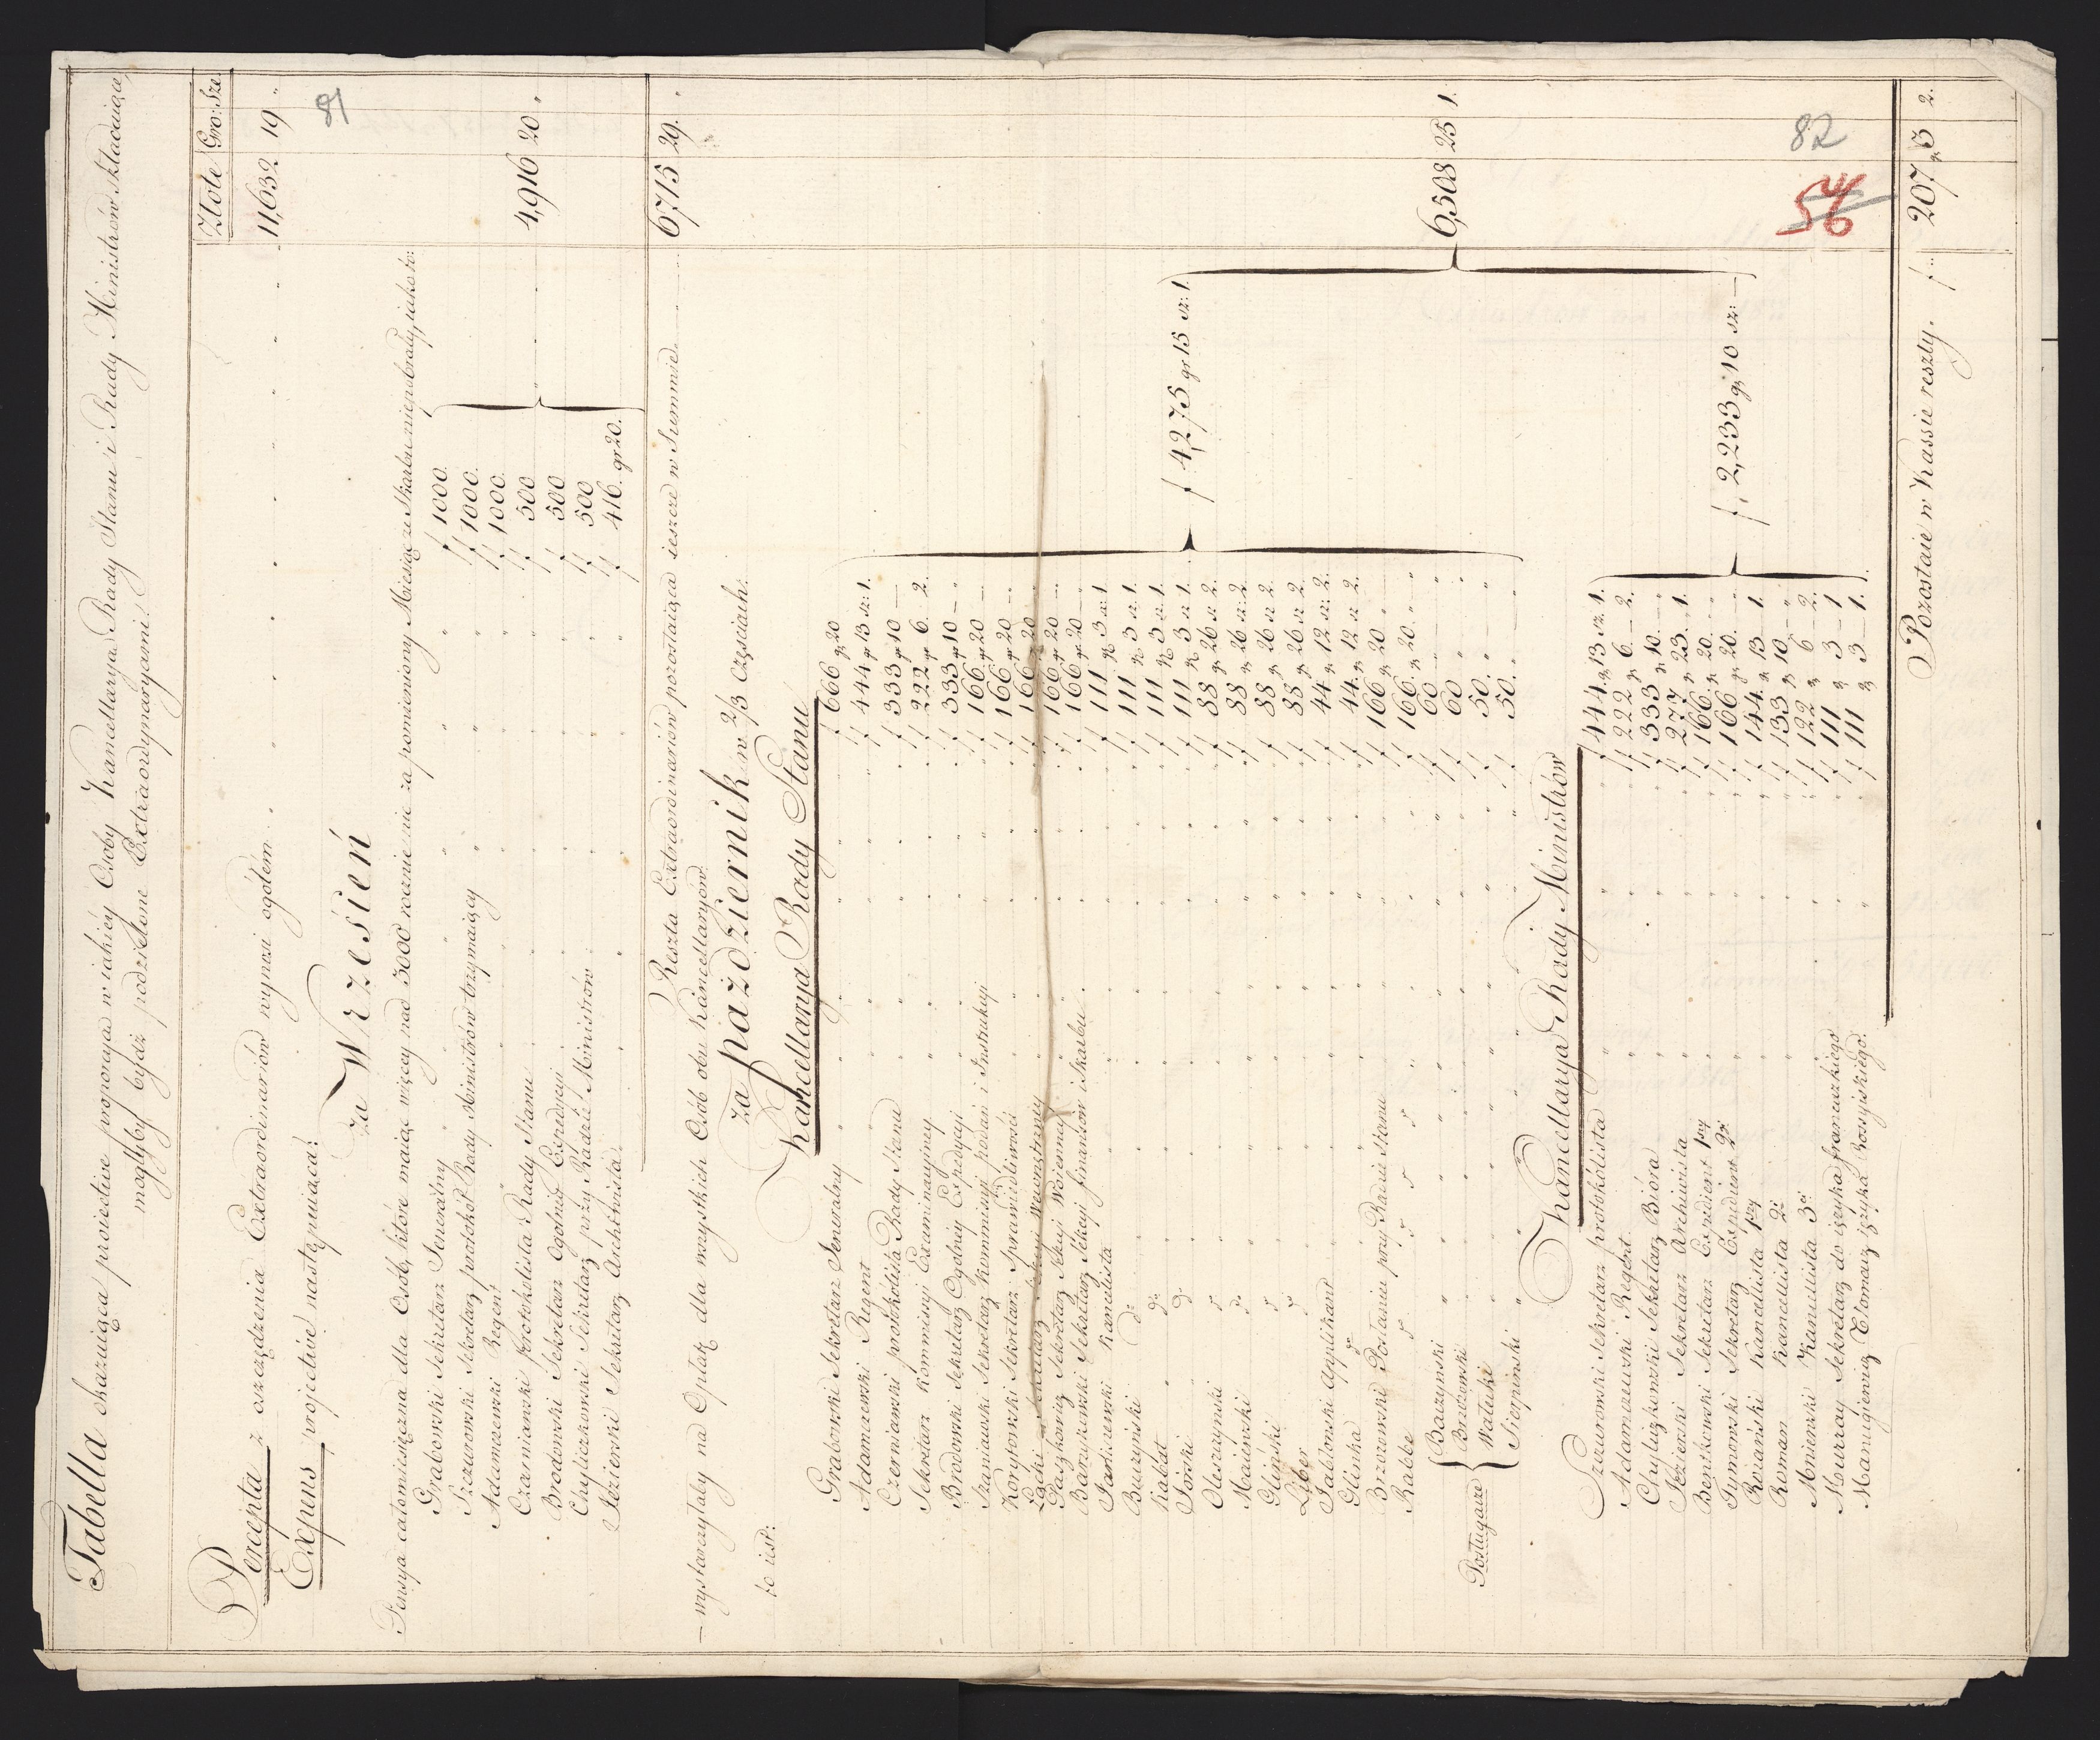 Tabella okazuiąca proiective propozycya w iakiéy Osoby Kancellarya Rady Stanu i Rady Ministrów składaiące,
mogłyby bydź podzielone Extraordynaryami.
Złote Gro: Sze.
Percepta z oszczędzenia Extraordinariów wynosi ogółem 11,632 19
81
Expens projective następuiąca:
za Wrzesień
Pensya całomiesięczna dla Osób, które maiąc więcey nad 5000 rocznie nic za pomieniony Miesiąc ze Skarbu niepobrały, iako to:
Grabowski Sekretarz Jeneralny f 1000.
Szczurowski Sekretarz protokół Rady Ministrów trzymaiący f 1000.
Adamczewski Regent f 1000.
Czarnianski protokolista Rady Stanu f 500
Brodowski Sekretarz Ogólney Expedycyi f 500
Chyliczkowski Sekretarz przy Radzie Ministrów f 500
Jezierski Sekretarz Archiwista f 416. gr 20.
4,916 20
Reszta Extraordinariów pozostaiąca ieszcze w Summie 6715 29.
wystarczyłaby na Opłatę dla wszystkich Osób obu Kancellaryów
za październik w 2/3 częściach:
to iest:
Kancellarya Rady Stanu
Grabowski Sekretarz Jeneralny f 666 gr 20
Adamczewski Regent f 444 gr 13 sz: 1.
Czerniawski protokolista Rady Stanu f 333 gr 10 —
Sekretarz Kommissyi Examinacyiney f 222 gr 6. 2.
Brodowski Sekretarz Ogólnéy Expedycyi f 333 gr 10 —
Szaniawski Sekretarz Kommissyi podań i Instrukcyi f 166 gr 20 —
Korytowski Sekretarz Sprawiedliwości f 166 gr 20 —
Łącki Sekretarz Sekcyi Wewnętrzney f 166 gr 20
Paszkowicz Sekretarz Sekcyi Woienney f 166 gr 20 —
Barzykowski Sekretarz Sekcyi finansów i Skarbu f 166 gr 20 —
Jarliczewski Kancelista f 111 gr 3 sz: 1.
Buczyński do f 111 gr 3 sz 1.
Kabat do f 111 gr 3 sz 1.
Górski do f 111 gr 3 sz 1.
Oleszczynski f 88 gr 26 sz 2.
Maienski f 88 gr 26 sz: 2.
Gliński f 88 gr 26 sz 2.
Liber f 88 gr 26 sz 2.
Jabłonski Applikant f 44 gr 12 sz: 2.
Glinka f 44. gr 12 sz 2.
Brzozowski Posłaniec przy Radzie Stanu f 166 gr 20
Rabbe f 166. gr 20.
Posługacze
Baczynski f 60
Brzozowski f 60
Watuski f 50.
Sierpinski f 50.
f 4,275 gr 15 sz: 1.
Kancellarya Rady Ministrów
Szczurowski Sekretarz protokólista f 444. gr 13 sz. 1.
Adamczewski Regent. f 222 gr 6. — 2.
Chyliczkowski Sekretarz Bióra f 333 gr 10. —
Jezierski Sekretarz Archiwista f 277 gr 23. 1.
Bentkowski Sekretarz Expdient 1szy f 166. gr 20.
Tymowski Sekretarz Expdient 2gi f 166 gr 20.
Roiański Kancelista 1szy f 144. gr 13 1.
Roman Kancellista 2gi f 133 gr 10.
Mnienski Kancellista 3ci f 122 gr 6 2.
Murray Sekretarz do ięzyka francuzkiego f 111 gr 3 — 1
Manugiewicz Tłomacz ięzyka Rossyiskiego. f 111 gr 3 — 1.
f 2,233 gr 10 sz: —
6,508 25 1.
82
56
Pozostaie w Kassie reszty. f 207 gr 3 2.